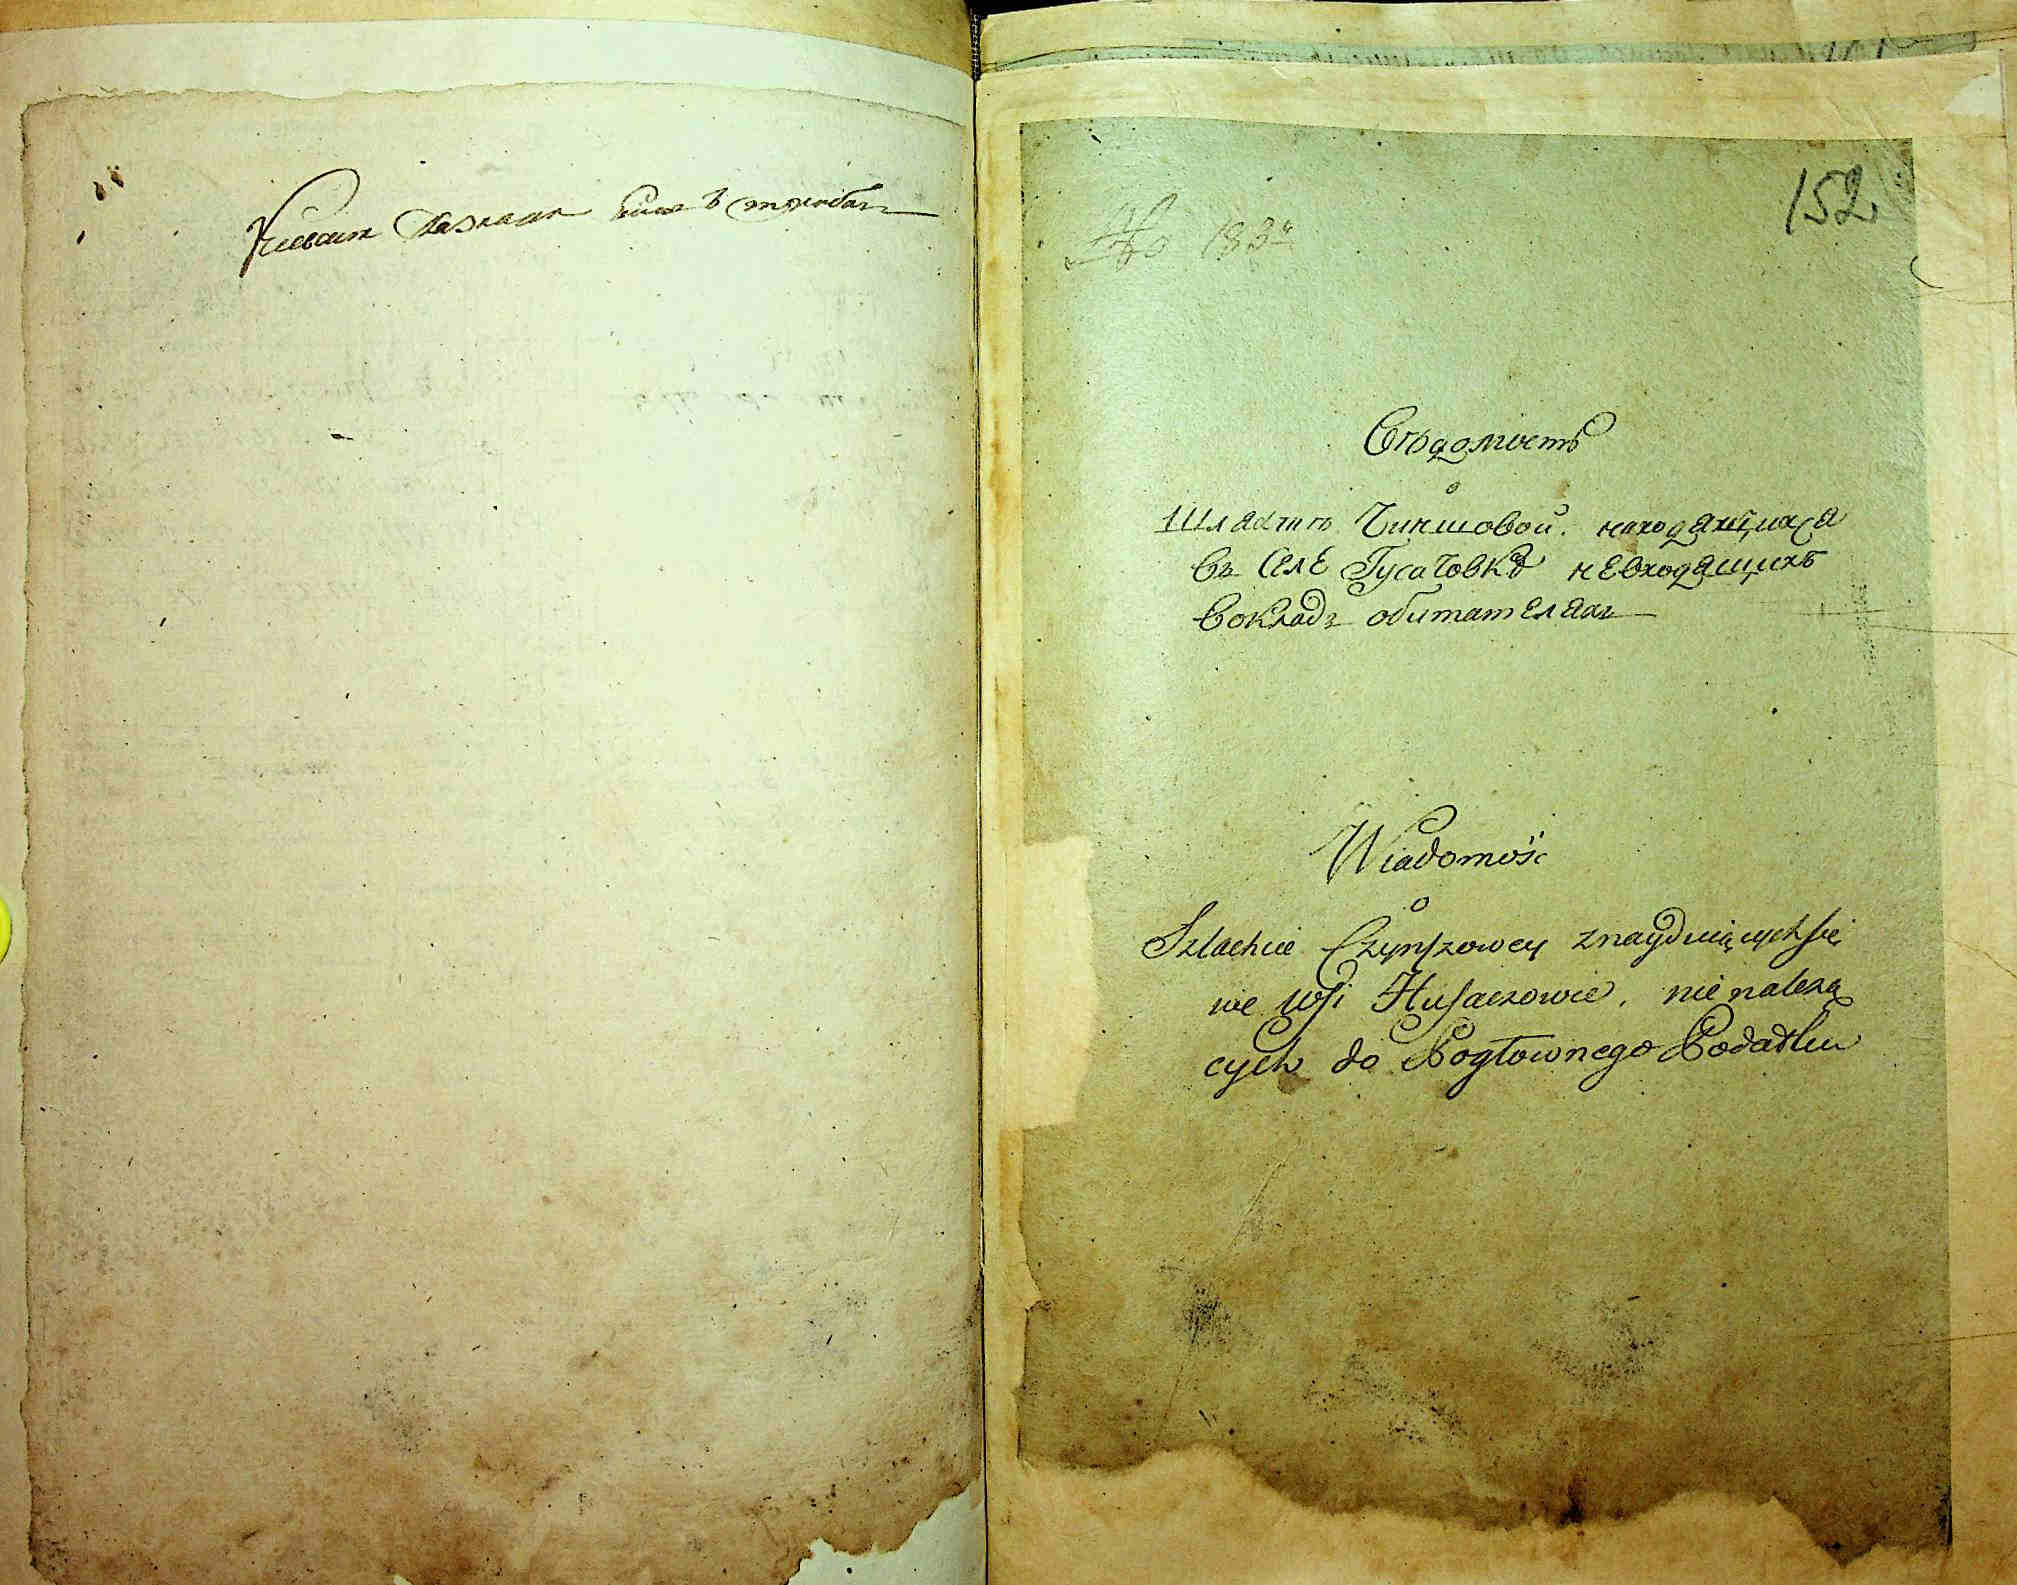 152
№ 183
Вѣдомость
о
Шляхтѣ Чиншовой. находящихся
въ Селе Гусачовкѣ невходящихъ
вокладъ обитателяхъ
Wiadomość
o
Szlachcie Czynszowey znayduiących się
we wsi Husaczowce, nie należą
cych do Pogłownego Podatku